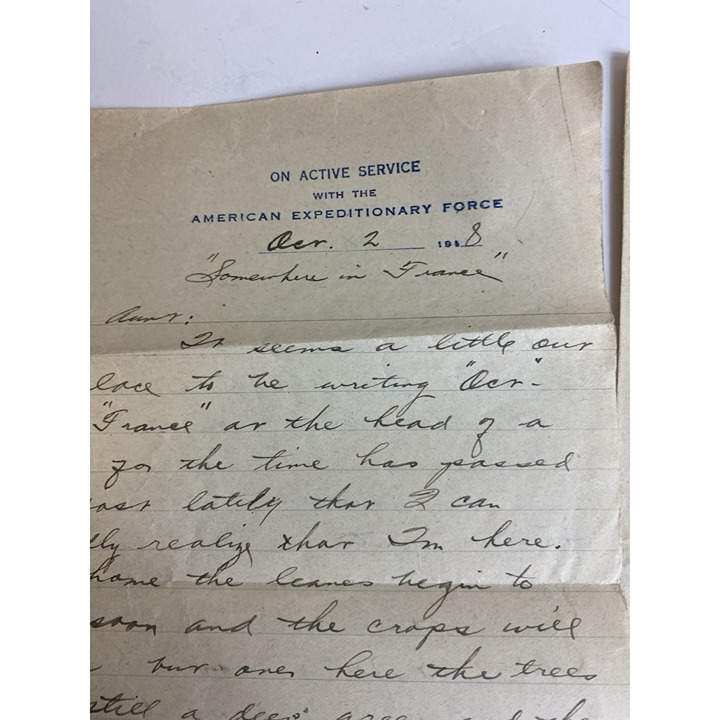 ON ACTIVE SERVICE
WITH THE
AMERICAN EXPEDITIONARY FORCE
Oct. 2 1918
"Somewhere in France"
Aunt:
It seems a little out
lace to be writing "Oct-
"France" at the head of a
for the time has passed
ast lately that I can
lly realize that I'm here.
home the leaves begin to
soon and the crops will
but over here the trees
still a deep